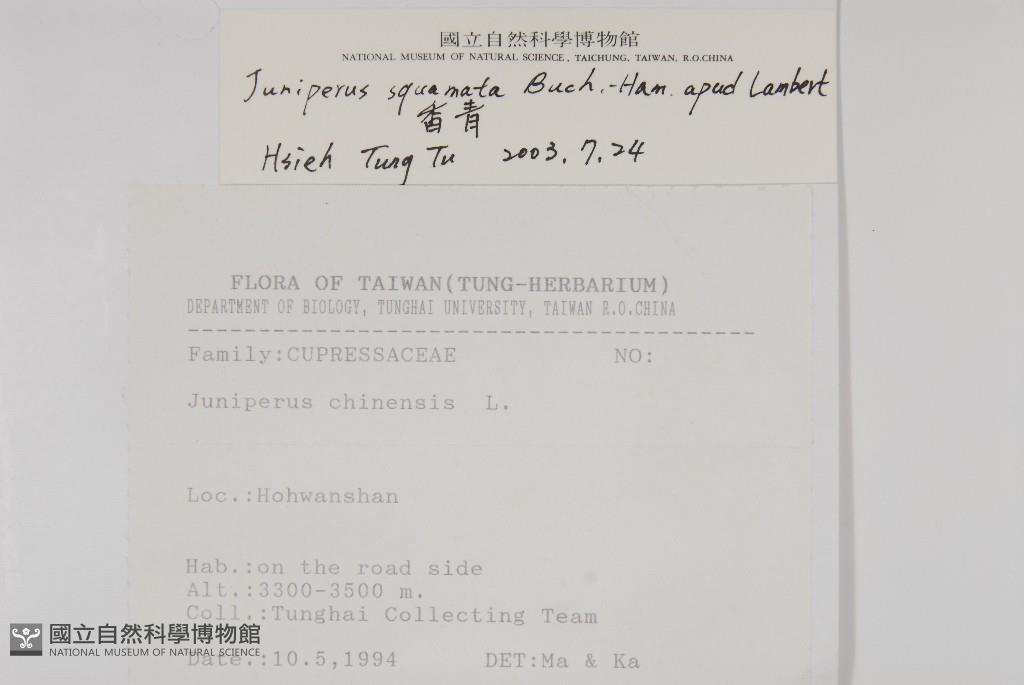 國立自然科學博物館
NATIONAL MUSEUM OF NATURAL SCIENCE, TAICHUNG, TAIWAN, R.O.CHINA
Juniperus squamata Buch.-Ham. apud Lambert
香青
Hsieh Tung Tu 2003.7.24
FLORA OF TAIWAN(TUNG-HERBARIUM)
DEPARTMENT OF BIOLOGY, TUNGHAI UNIVERSITY, TAIWAN R.O.CHINA
Family:CUPRESSACEAE NO:
Juniperus chinensis L.
Loc.:Hohwanshan
Hab.:on the road side
Alt.:3300-3500 m.
Coll.:Tunghai Collecting Team
國立自然科學博物館
NATIONAL MUSEUM OF NATURAL SCIENCE
Date.:10.5,1994 DET:Ma & Ka